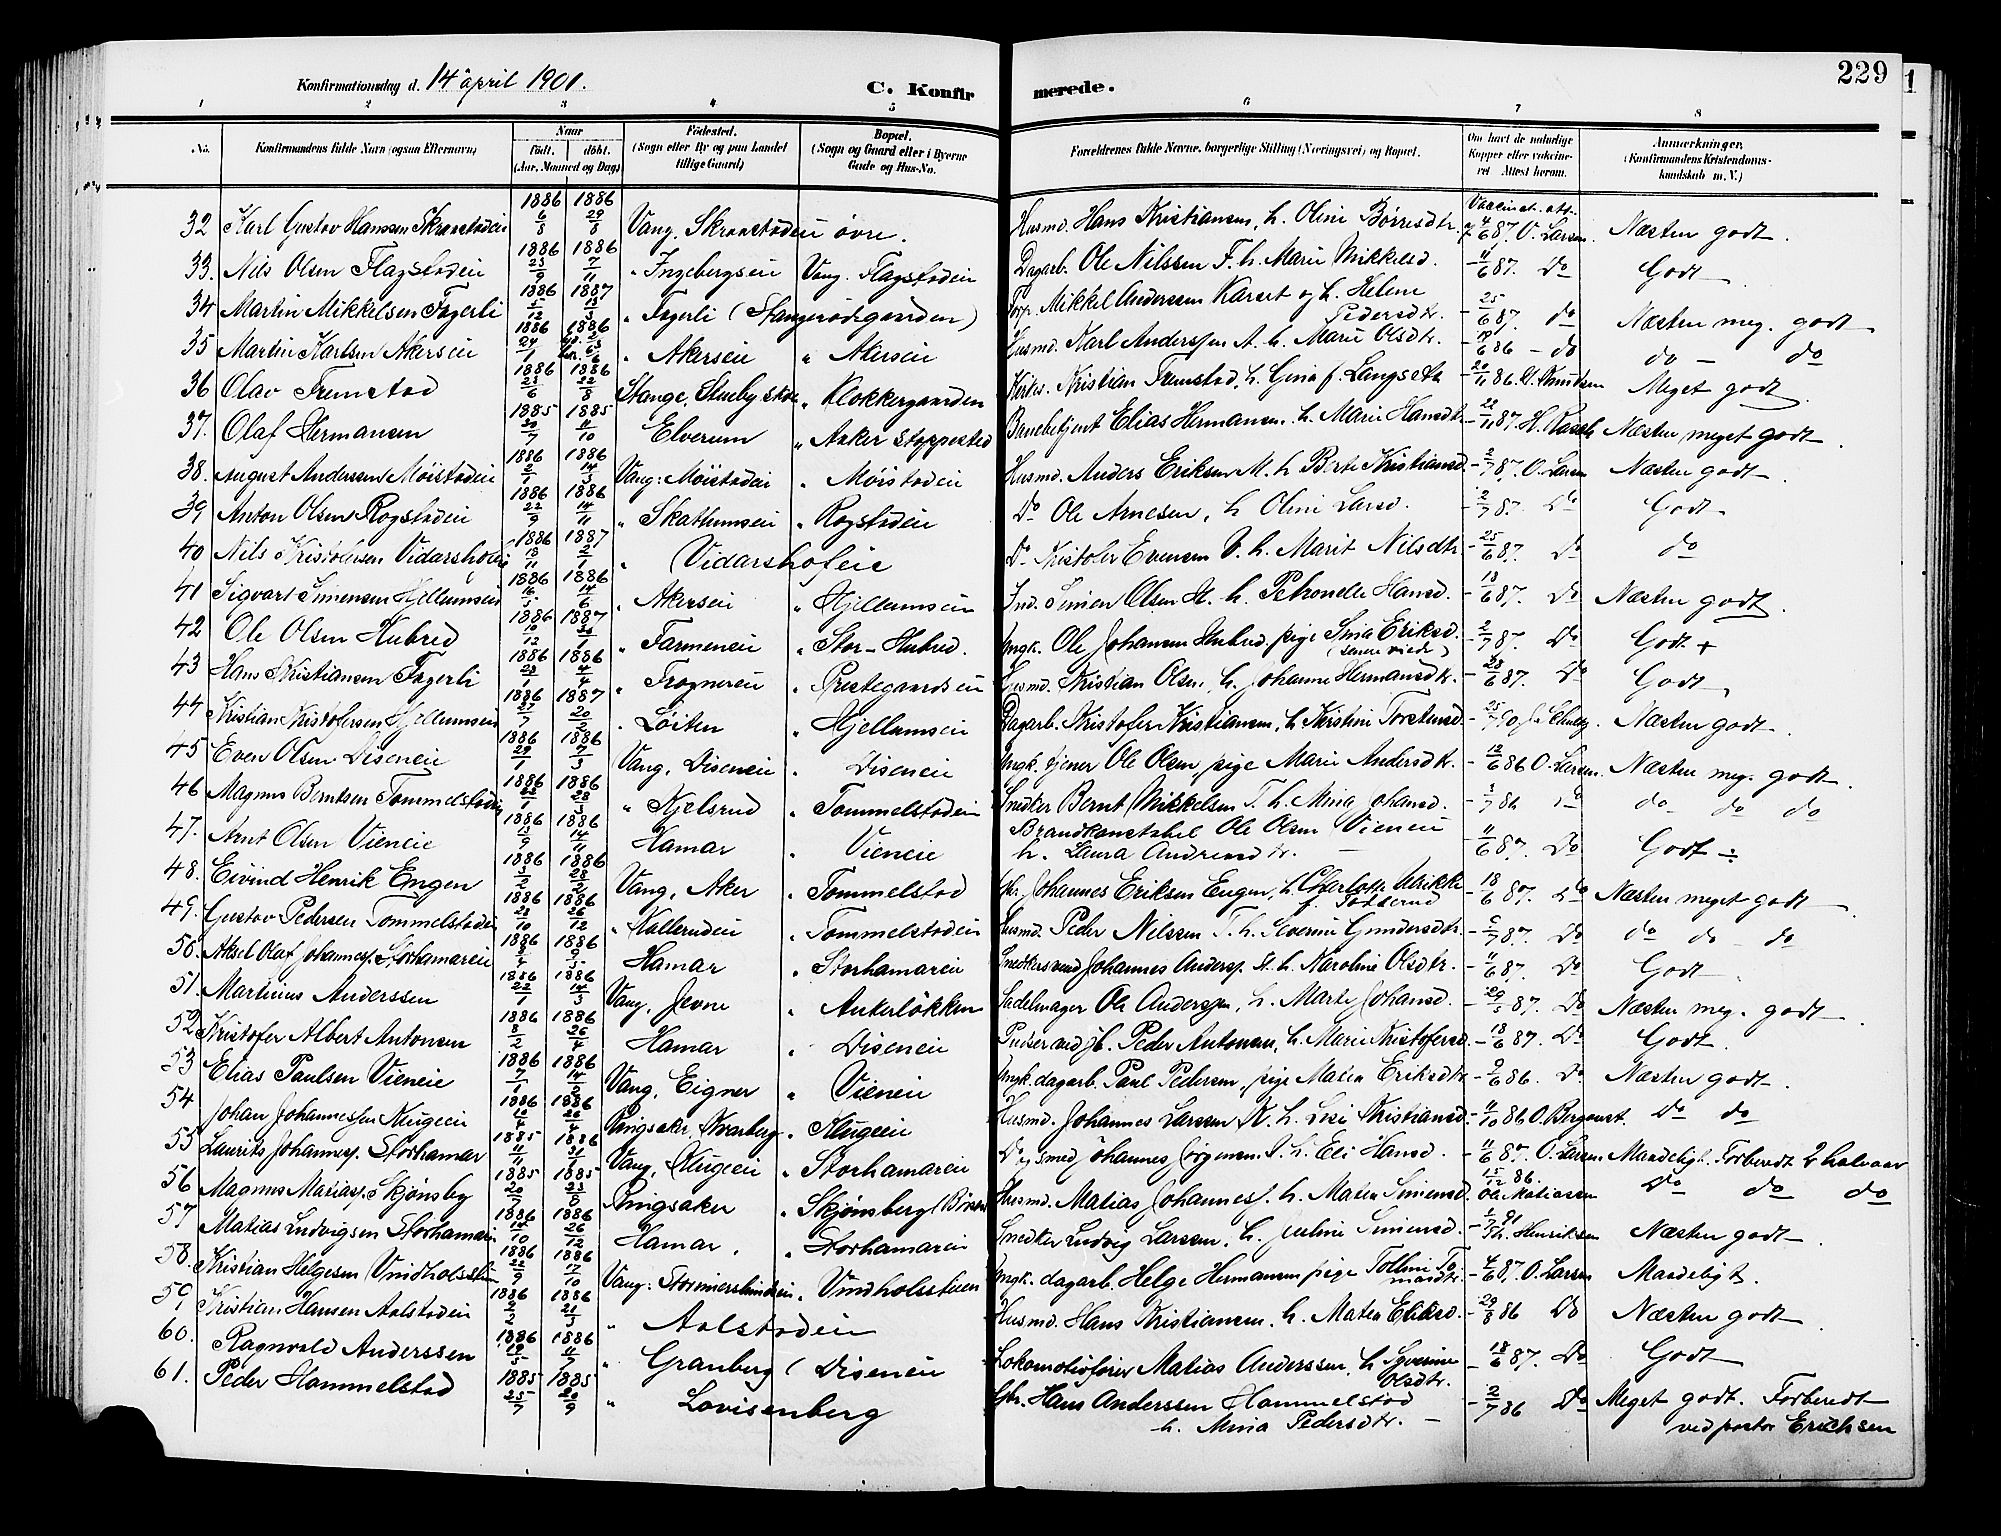 229
Konfirmationsdag d. 14 april 1901.
C. Konfir
merede.
1 2 3 4 5 6 7 8
No. Konfirmandens fulde Navn (ogsaa Efternavn) Naar født. døbt. (Aar, Maaned og Dag) Fødested. (Sogn eller By og paa Landet tillige Gaard) Bopæl. (Sogn og Gaard eller i Byerne Gade og Hus-No. Forældrenes fulde Navne, borgerlige Stilling (Næringsvei) og Bopæl. Om havt de naturlige Kopper eller vaksineret. Attest herom. Anmerkninger. (Konfirmandens Kristendomskundskab m. V.)
32 Karl Gustav Hansen Skravstadeie 1886 6/8 1886 29/8 Vang, Skravstadeie øvre. Husmd. Hans Kristiansen, h. Olini Børresdtr. Vaccinat. att. 4/6 87. O. Larsen. Næsten godt.
33. Nils Olsen Flagstadeie 1886 23/9 1886 7/11 " Ingebergseie Vang. Flagstadeie Dagarb. Ole Nilssen F. h. Marie Mikkelsd. - 11/6 87. Do Godt
34 Martin Mikkelsen Fagerli 1886 5/12 1887 13/3 " Fagerli (Stangerødegaarden) Mikkel Anderssen Karset og h. Helene Pedersdtr. - 25/6 87. do Næsten meg. godt
35 Martin Karlsen Akerseie 1886 24/1 1886 " Akerseie " Akerseie Husmd. Karl Anderssen A. h. Marie Olsdtr. - 19/6 86 - do do - do
36 Olav Fremstad 1886 23/6 1886 22/8 Stange, Stueby skole " Klokkergaarden Kirkes. Kristian Fremstad, h. Gina f. Langseth - 20/11 86. Knudsen Meget godt
37. Olaf Hermansen 1885 30/7 1885 11/10 Elverum " Anker Stoppested Banebetjent Elias Hermansen. h. Marie Hansdtr. - 22/11 87. H. Næsten meget godt
38. August Anderssen Møistadeie 1886 2/1 1886 14/3 Vang: Møistadeie " Møistadeie Husmd. Anders Eriksen M. h. Berte Kristiansd. - 2/7 87. O. Larsen Næsten godt.
39 Anton Olsen Rogstadeie 1886 22/9 1886 14/11 " Skattumseie " Rogstadeie Do Ole Arnesen, h Olini Larsd. - 2/7 87. Do Godt
40 Nils Kristofersen Vidarshofeie 1886 18/11 1887 2/1 " Vidarshofeie Do Kristofer Evensen V. h. Marit Nilsdtr. - 25/6 87. Do do
41 Sigvart Simensen Hjellumseie 1886 16/5 1886 14/6 " Akerseie " Hjellumseie Ind. Simen Olsen H. h. Petronelle Hansd. - 18/6 87. Do Næsten godt.
42 Ole Olsen Hubred 1886 10/12 1887 " Farmeneie " Stor-Hubred. Ungk. Ole Johansen Hubred, pige Sina Eriksd. (senere viede) - 2/7 87. Do Godt +
43 Hans Kristiansen Fagerli 1886 23/1 1886 4/4 " Frognereie " Prestegaardseie Husmd. Kristian Olsen, h. Johanne Hermansdtr. - 23/6 87. Do Godt
44 Kristian Kristofersen Hjellumseie 1886 27/7 1887 20/2 " Løiten " Hjellumseie Dagarb. Kristofer Kristiansen, h Kristine Torstensd. - 25/7 90 Næsten godt
45 Even Olsen Diseneie 1886 29/1 1886 7/3 Vang, Diseneie " Diseneie Ungk. tjener Ole Olsen, pige Marie Andersdtr. - 12/6 86 O. Larsen. Næsten meg. godt
46 Magnus Berntsen Tommelstadeie 1886 1886 28/3 " Kjelsrud " Tommelstadeie Snedker Bernt Mikkelsen T. h. Mina Johansd. - 3/7 86 Do do do do
47. Arnt Olsen Vieneie 1886 13/9 1886 14/11 Hamar " Vieneie Brandkonstabel Ole Olsen Vieneie h. Laura Andreasdtr. - 11/6 87. Do Godt ÷
48. Eivind Henrik Engen 1886 3/2 1886 28/2 Vang, Aker " Tommelstad Johannes Eriksen Engen, h. Charlotte Ulrikke - 18/6 87. Do Næsten meget godt
49. Gustav Pedersen Tommelstadeie 1886 23/10 1886 26/12 " Kallerudeie " Tommelstadeie Husmd. Peder Nilssen T. h. Severine Gundersdtr. - 2/7 87. Do do do - do
50. Aksel Olaf Johanness. Storhamareie 1886 1886 Hamar " Storhamareie Snedkersvend Johannes Anderss. St. h. Karoline Olsdtr. - 11/6 87. Do Godt
51. Martinus Anderssen 1886 22/1 1886 14/3 Vang, Jevne " Ankerløkken Sadelmager Ole Anderssen, h. Marte Johansd. - 29/5 87. Do Næsten meg. godt
52 Kristofer Albert Antonsen 1886 8/2 1886 26/4 Hamar " Diseneie Pudser ved jb. Peder Antonsen, h. Marie Kristofersd. - 18/6 87. Do Godt
53 Elias Paulsen Vieneie 1886 1886 Vang, Eigner " Vieneie Ungk. dagarb. Paul Pedersen, pige Matea Eriksdtr. - 9/6 86. Do Næsten godt.
54 Johan Johannessen Klugeeie 1886 10/4 1886 26/4 Ringsaker, Kvarberg " Klugeeie Husmd. Johannes Larssen K. h. Lisi Kristiansd. - 11/10 86 O. Bergquist. Do do
55 Laurits Johanness. Storhamar 1885 11/11 1886 31/1 Vang, Klugeeie " Storhamareie Do og smed Johannes Jørgensen S. h. Eli Hansd. - 11/6 87. O. Larsen Maadeligt. Forberedt 2 halvaar
56 Magnus Matiass. Skjønsby 1885 20/7 1885 23/8 Ringsaker " Skjønsberg Husmd. Matias Johanness. h. Matea Simensd. 86. Ole Matiassen Do do do
57 Matias Ludvigsen Storhamareie 1886 15/10 1886 26/12 Hamar, " Storhamareie Snedker Ludvig Larssen, h. Juline Simensd. 91 Th. Henriksen Næsten godt
58. Kristian Helgesen Vindholssteen 1886 22/9 1886 17/10 Vang: " Vindholssteen Ungk. dagarb. Helge Hermansen pige Tolline Tomasdtr. - 4/6 87. O. Larsen Maadeligt.
59 Kristian Hansen Aalstadeie 1886 2/2 1886 21/3 " Aalstadeie Husmd. Hans Kristiansen, h. Matea Eriksd. - 29/8 86 Do Næsten godt
60. Ragnvald Anderssen 1886 19/5 1886 11/7 " Granberg (Diseneie Lokomotivfører Matias Anderssen, h. Severine Olsdtr. - 18/6 87. Do Godt
61. Peder Hammelstad 1885 25/7 1885 20/9 " Lovisenberg Gbr. Hans Anderssen Hammelstad h. Mina Pedersdtr. - - 2/7 86 Do Meget godt. Forberedt ved pastor Erichsen